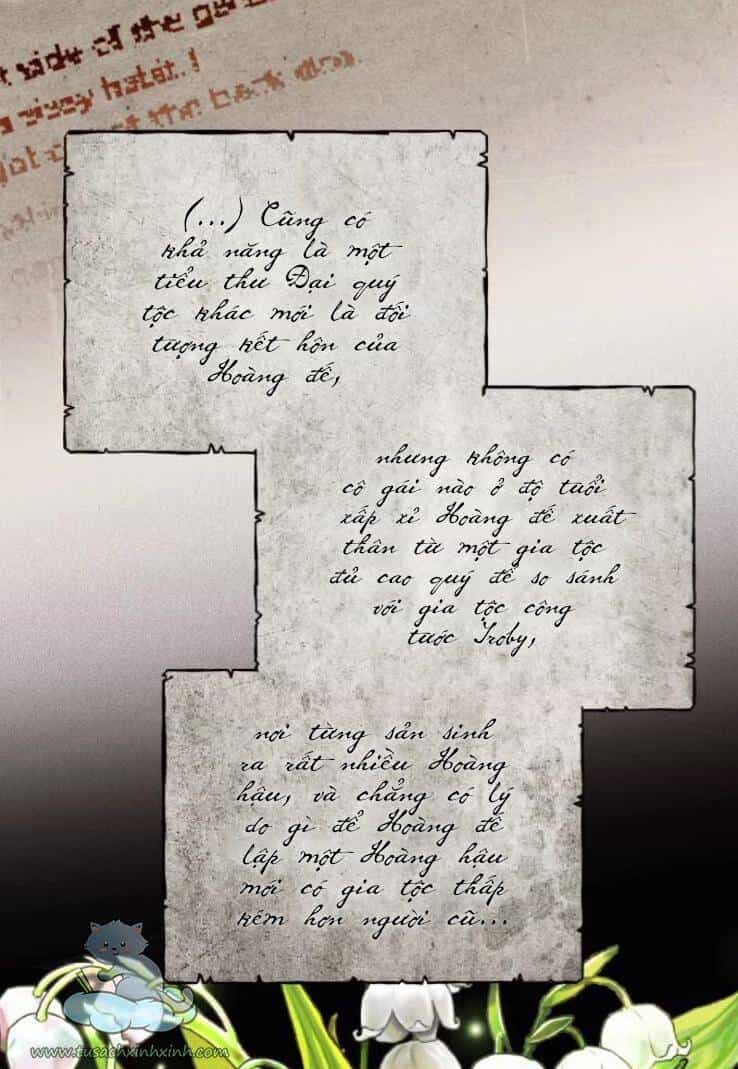 (...) Cũng có
khả năng là một
tiểu thư Đại quý
tộc khác mới là đối
tượng kết hôn của
Hoàng đế,
nhưng không có
cô gái nào ở độ tuổi
xấp xỉ Hoàng đế xuất
thân từ một gia tộc
đủ cao quý để so sánh
với gia tộc công
tước Iroby,
nơi từng sản sinh
ra rất nhiều Hoàng
hậu, và chẳng có lý
do gì để Hoàng đế
lập một Hoàng hậu
mới có gia tộc thấp
kém hơn người cũ...
www.tusachxinhxinh.com